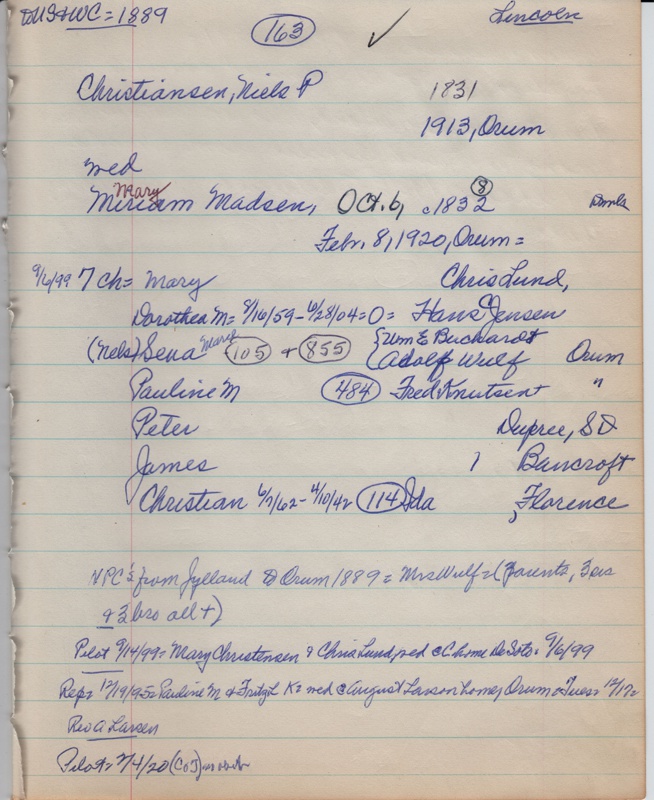 to US + WC = 1889 163 ✓ Lincoln
Christiansen, Niels P 1831
1913, Orum
wed
Mary
Miriam Madsen, Oct. 6, c1832 8
Febr. 8, 1920, Orum =
9/6/99 7 ch = Mary Chris Lund,
Dorothea M = 8/16/59 - 6/28/04 = 0 = Hans C Jensen
(Nels) Sena Marie 105 + 855 {Wm E Buchardt
Adolf Wulf Orum
Pauline M 484 Fred Knutsen "
Peter Dupree, SD
James 1 Bancroft
Christian 6/7/62 - 4/10/42 114 Ida , Florence
NPC's from Jylland to Orum 1889 = Mrs Wulf = (parents, 3 sis
+ 3 bro all +)
Pilot 9/14/99 = Mary Christensen + Chris Lund, wed @ C home De Soto = 9/6/99
Rep = 12/19/95 = Pauline M + Fritz L K = wed @ August Larson home, Orum Tues = 12/17 =
Rev A Larsen
Pilot = 2/4/20 (CoJ)